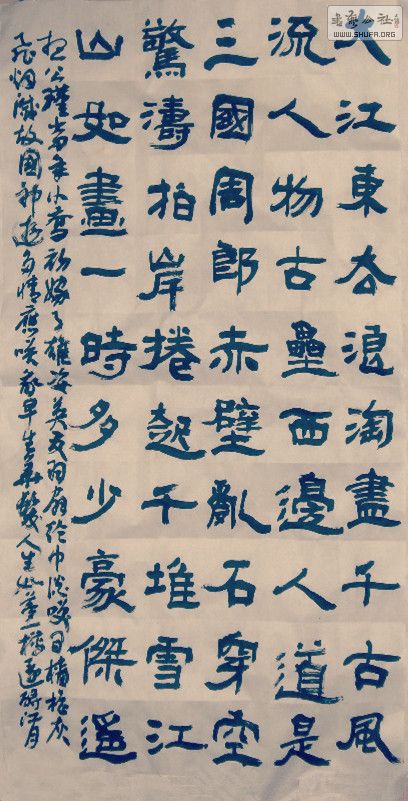 大江東去浪淘盡千古風
流人物古壘西邊人道是
三國周郎赤壁亂石穿空
驚濤拍岸捲起千堆雪江
山如畫一時多少豪傑遥
想公瑾當年小喬初嫁了雄姿英發羽扇綸巾談笑間樯櫓灰
飛烟滅故國神遊多情應咲我早生華髮人生如夢一樽還酹江月
書法公社
WWW.SHUFA.ORG